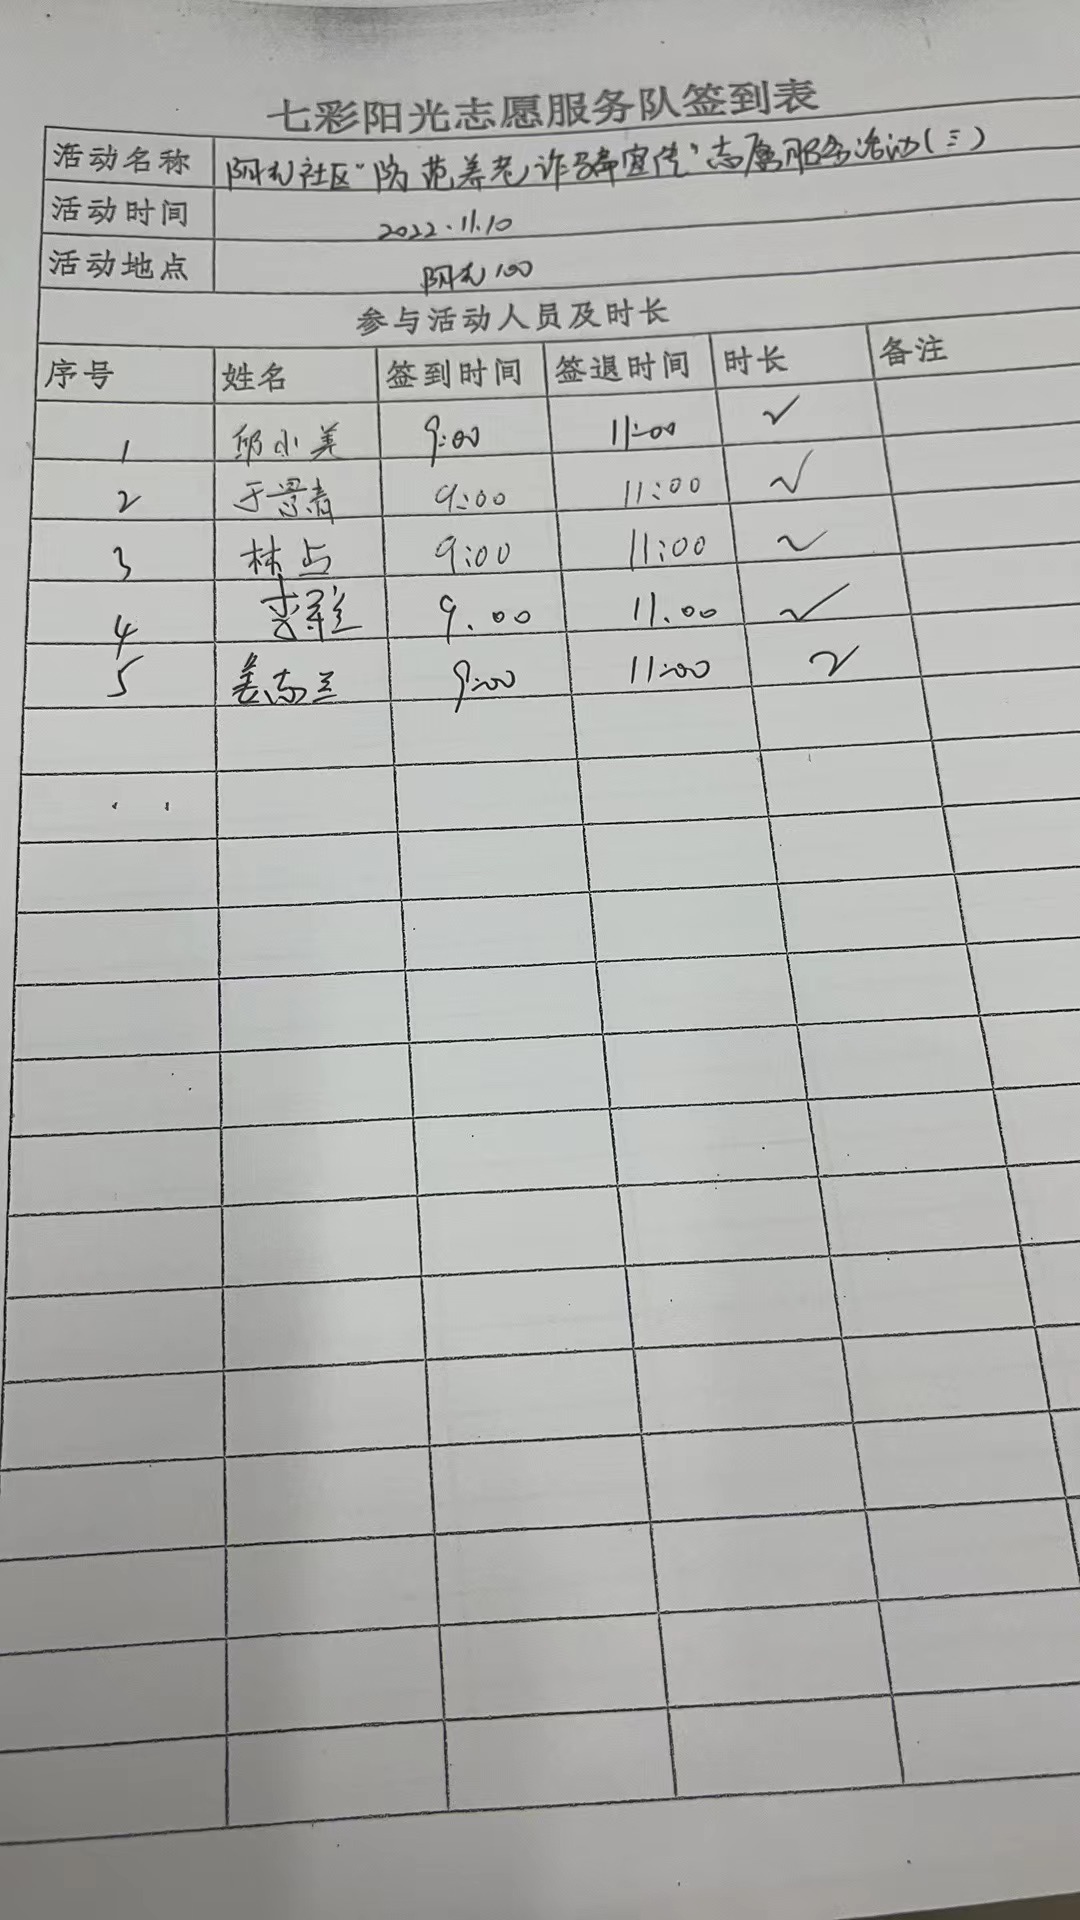 七彩阳光志愿服务队签到表
活动名称 阳光社区“防范养老诈骗宣传”志愿服务活动(三)
活动时间 2022.11.10
活动地点 阳光100
参与活动人员及时长
序号 姓名 签到时间 签退时间 时长 备注
1 邱小美 9:00 11:00 ✓
2 于景春 9:00 11:00 ✓
3 林占 9:00 11:00 ✓
4 李 9.00 11.00 ✓
5 姜志兰 9:00 11:00 ✓